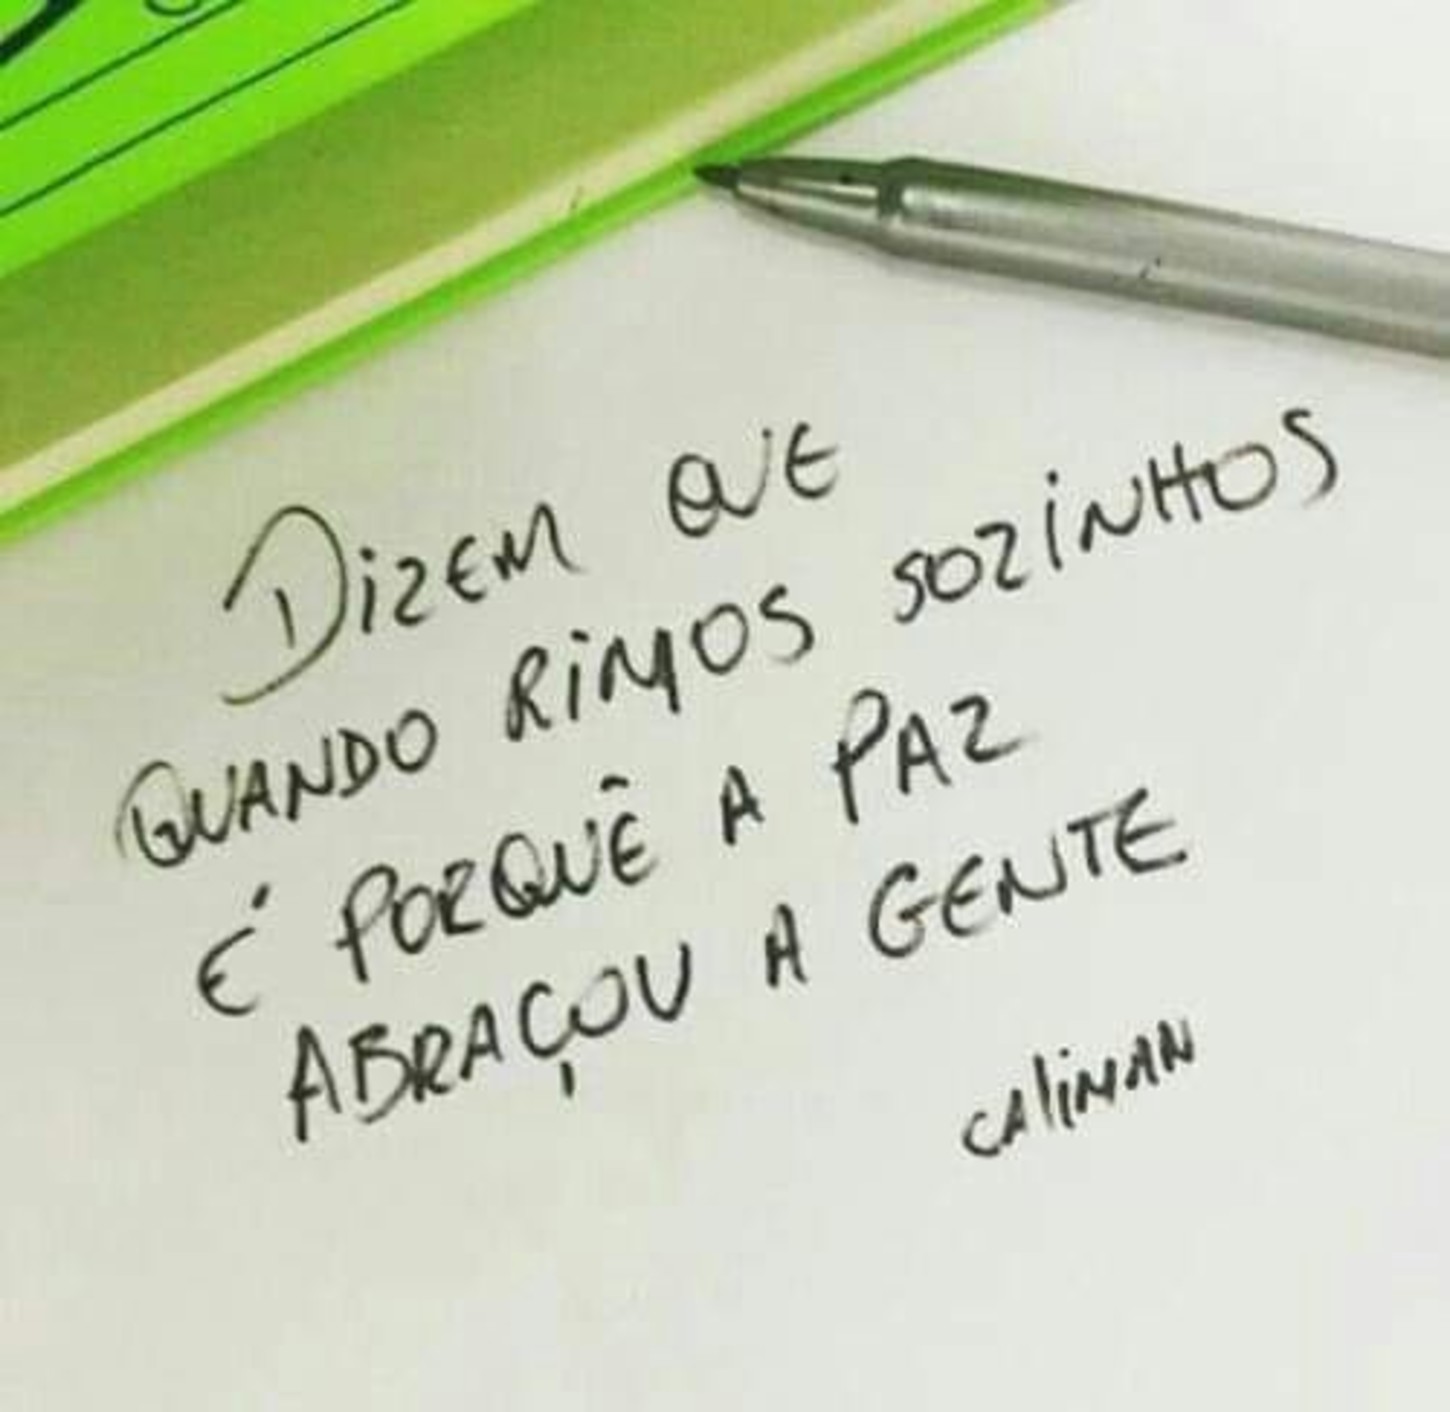 DiZEM QUE
QUANDO RiMOS SOZiNHOS
É PORQUÊ A PAZ
ABRAÇOU A GENTE
CALiMAN